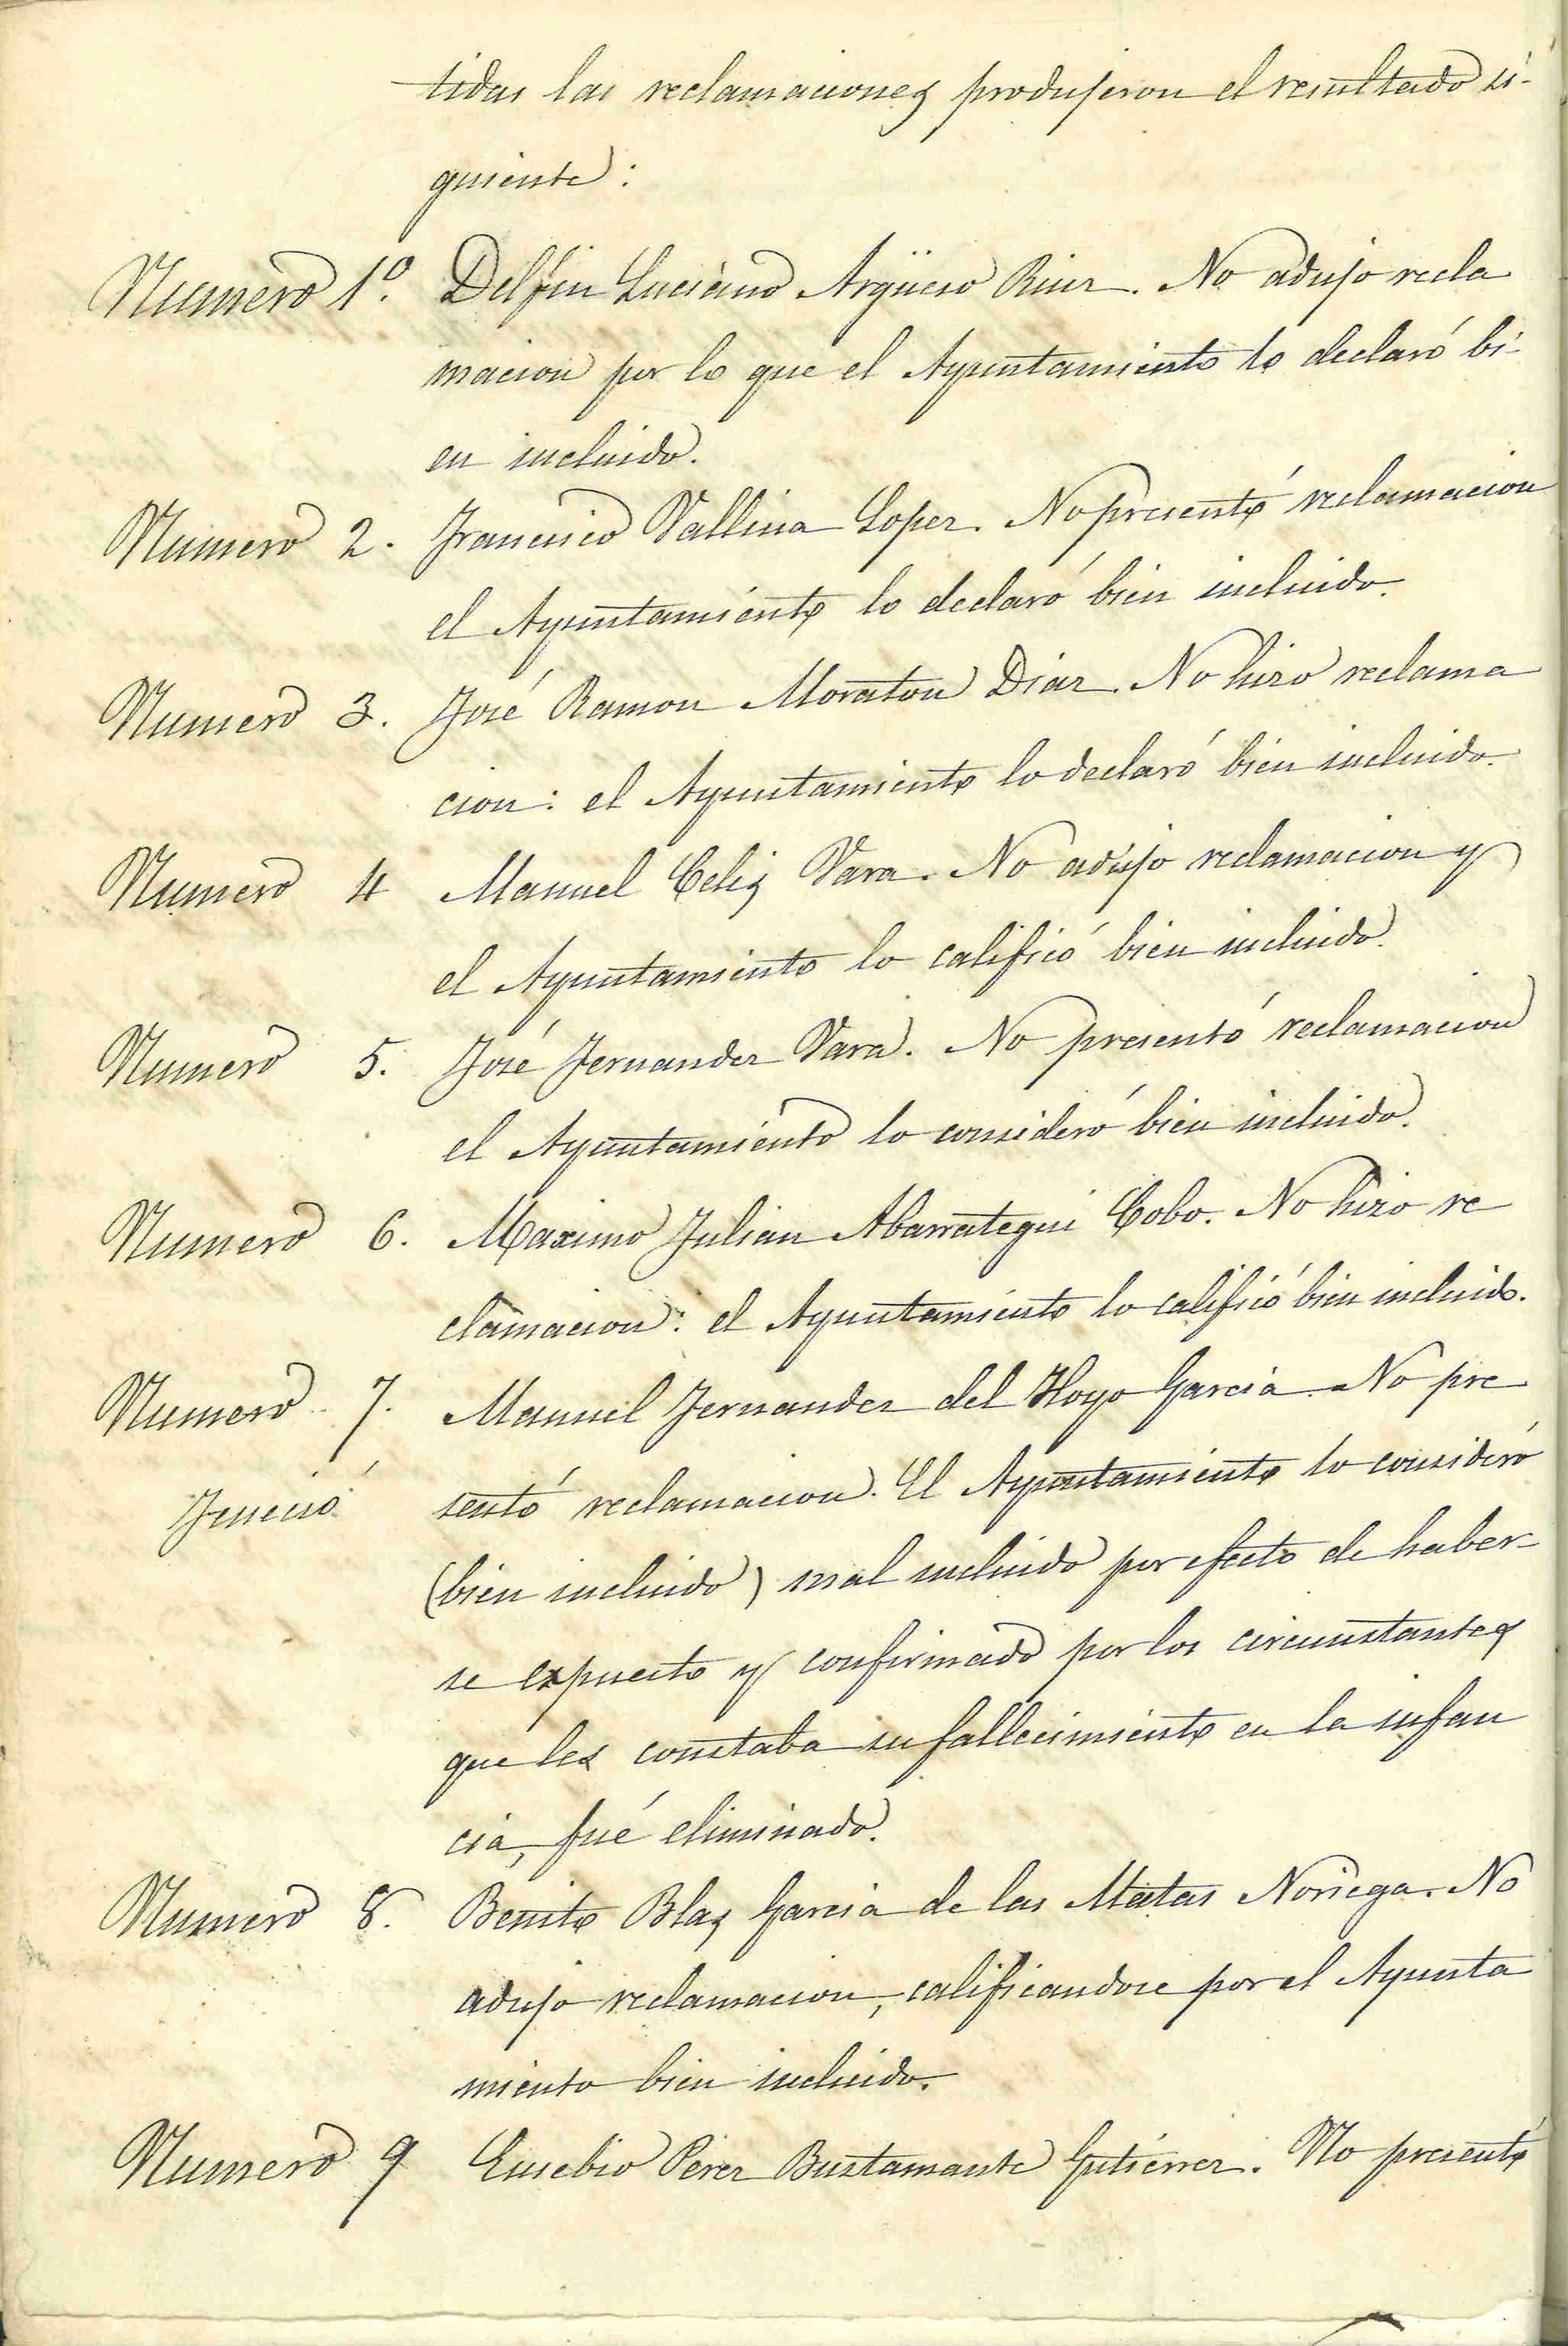 tidas las reclamaciones produjeron el resultado si-
guiente:
Numero 1º. Delfin Luciano Argüeso Ruiz. No adujo recla
macion por lo que el Ayuntamiento lo declaró bi-
en incluido.
Numero 2. Francisco Vallina Lopez. No presentó reclamacion
el Ayuntamiento lo declaró bien incluido.
Numero 3. José Ramon Moraton Diaz. No hizo reclama
cion: el Ayuntamiento lo declaró bien incluido.
Numero 4 Manuel Celis Vara. No adujo reclamacion y
el Ayuntamiento lo calificó bien incluido.
Numero 5. José Fernandez Vara. No presentó reclamacion
el Ayuntamiento lo consideró bien incluido.
Numero 6. Maximo Julian Abarrategui Cobo. No hizo re
clamacion: el Ayuntamiento lo calificó bien incluido.
Numero 7. Manuel Fernandez del Hoyo Garcia. No pre
Feneció sentó reclamacion. El Ayuntamiento lo consideró
(bien incluido) mal incluido por efecto de haber-
se expuesto y confirmado por los circunstantes
que les constaba su fallecimiento en la infan
cia, fué eliminado.
Numero 8. Benito Blas Garcia de las Matas Noriega. No
adujo reclamacion, calificandose por el Ayunta
miento bien incluido.
Numero 9 Eusebio Perez Bustamante Gutiérrez. No presentó